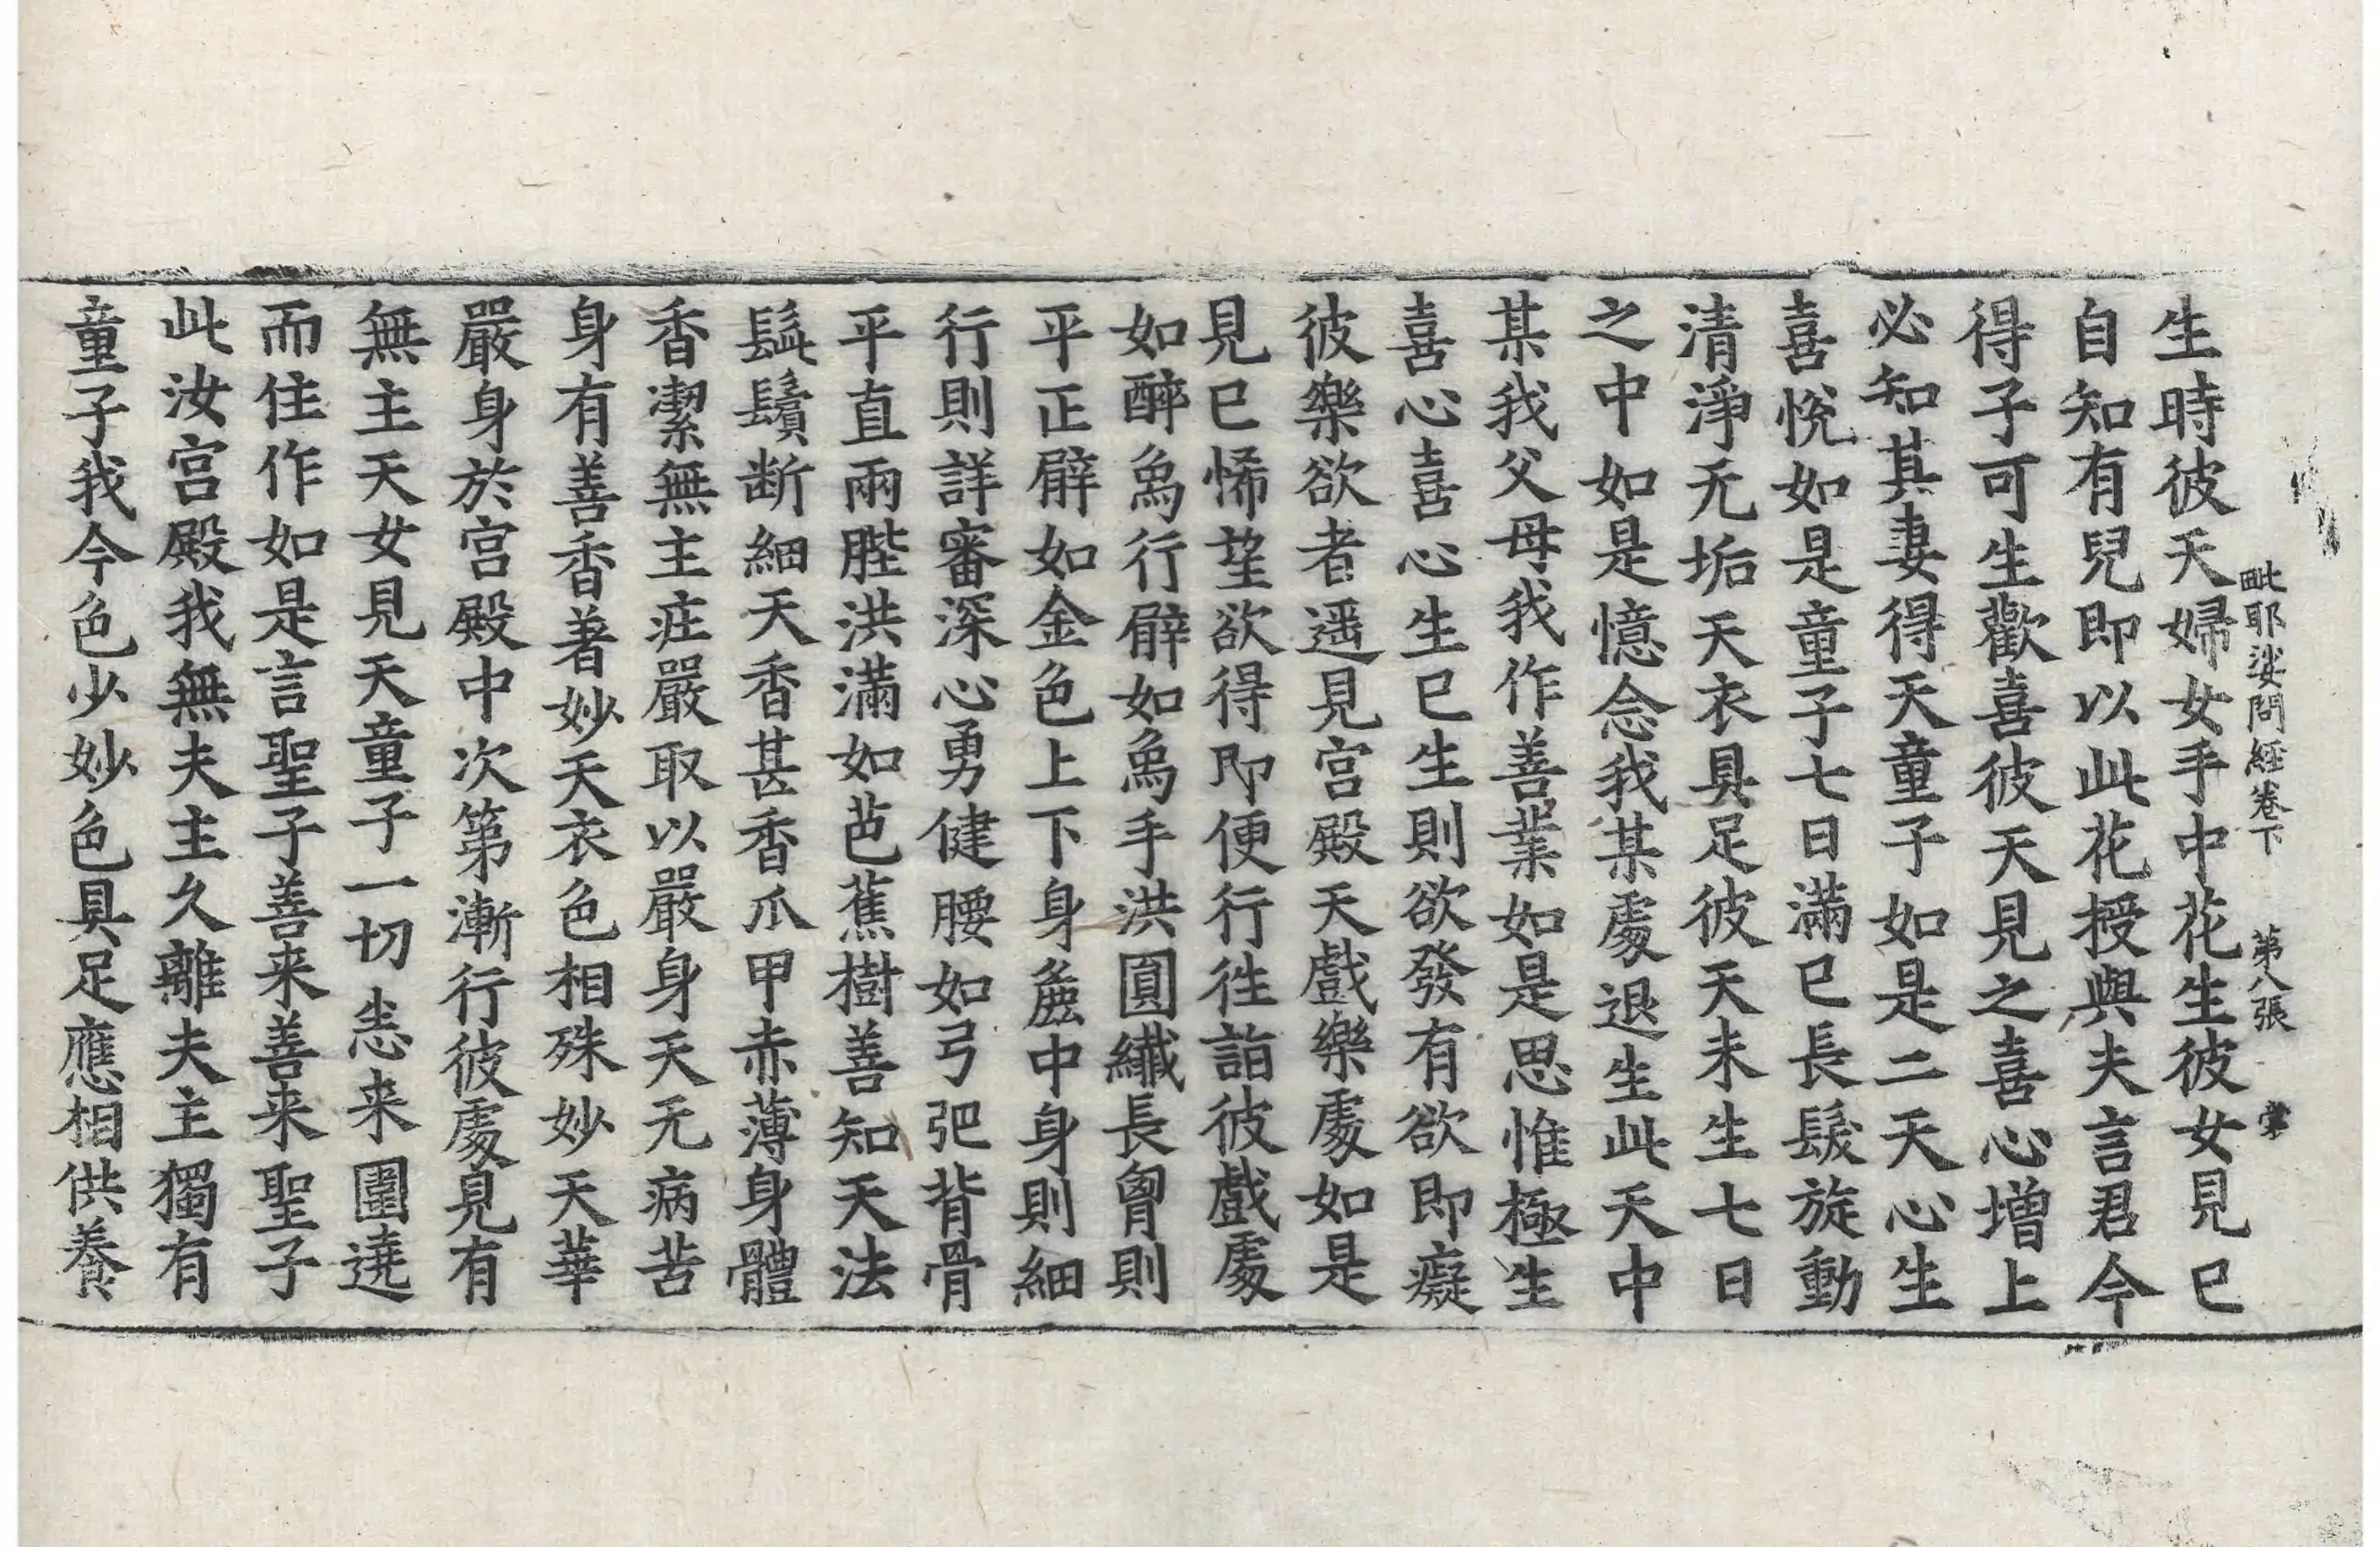 毗耶娑問經卷下 第八張 常
生時彼天婦女手中花生彼女見已
自知有兒即以此花授與夫言君今
得子可生歡喜彼天見之喜心增上
必知其妻得天童子如是二天心生
喜悅如是童子七日滿已長髮旋動
清淨无垢天衣具足彼天未生七日
之中如是憶念我某處退生此天中
某我父母我作善業如是思惟極生
喜心喜心生已生則欲發有欲即癡
彼樂欲者遥見宮殿天戲樂處如是
見已悕望欲得即便行往詣彼戲處
如醉象行臂如象手洪圓纖長𦚾則
平正臂如金色上下身麁中身則細
行則詳審深心勇健腰如弓弝背骨
平直兩䏶洪滿如芭蕉樹善知天法
髭鬚断細天香甚香爪甲赤薄身體
香潔無主庄嚴取以嚴身天无病苦
身有善香著妙天衣色相殊妙天華
嚴身於宮殿中次第漸行彼處見有
無主天女見天童子一切恙来圍遶
而住作如是言聖子善来善来聖子
此汝宮殿我無夫主久離夫主獨有
童子我今色少妙色具足應相供養